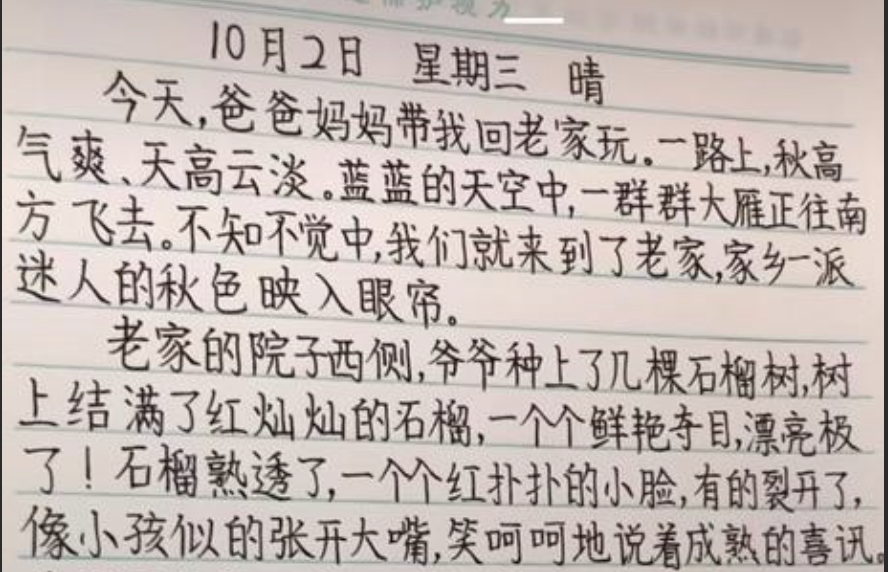 保护视力
10月2日 星期三 晴
今天,爸爸妈妈带我回老家玩。一路上,秋高
气爽、天高云淡。蓝蓝的天空中,一群群大雁正往南
方飞去。不知不觉中,我们就来到了老家,家乡一派
迷人的秋色映入眼帘。
老家的院子西侧,爷爷种上了几棵石榴树,树
上结满了红灿灿的石榴,一个个鲜艳夺目,漂亮极
了!石榴熟透了,一个个红扑扑的小脸,有的裂开了,
像小孩似的张开大嘴,笑呵呵地说着成熟的喜讯。